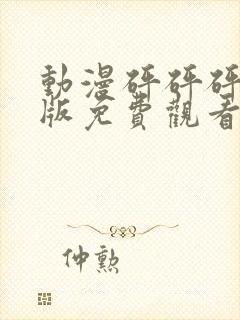 動漫砰砰砰
版免費觀看
仲勲